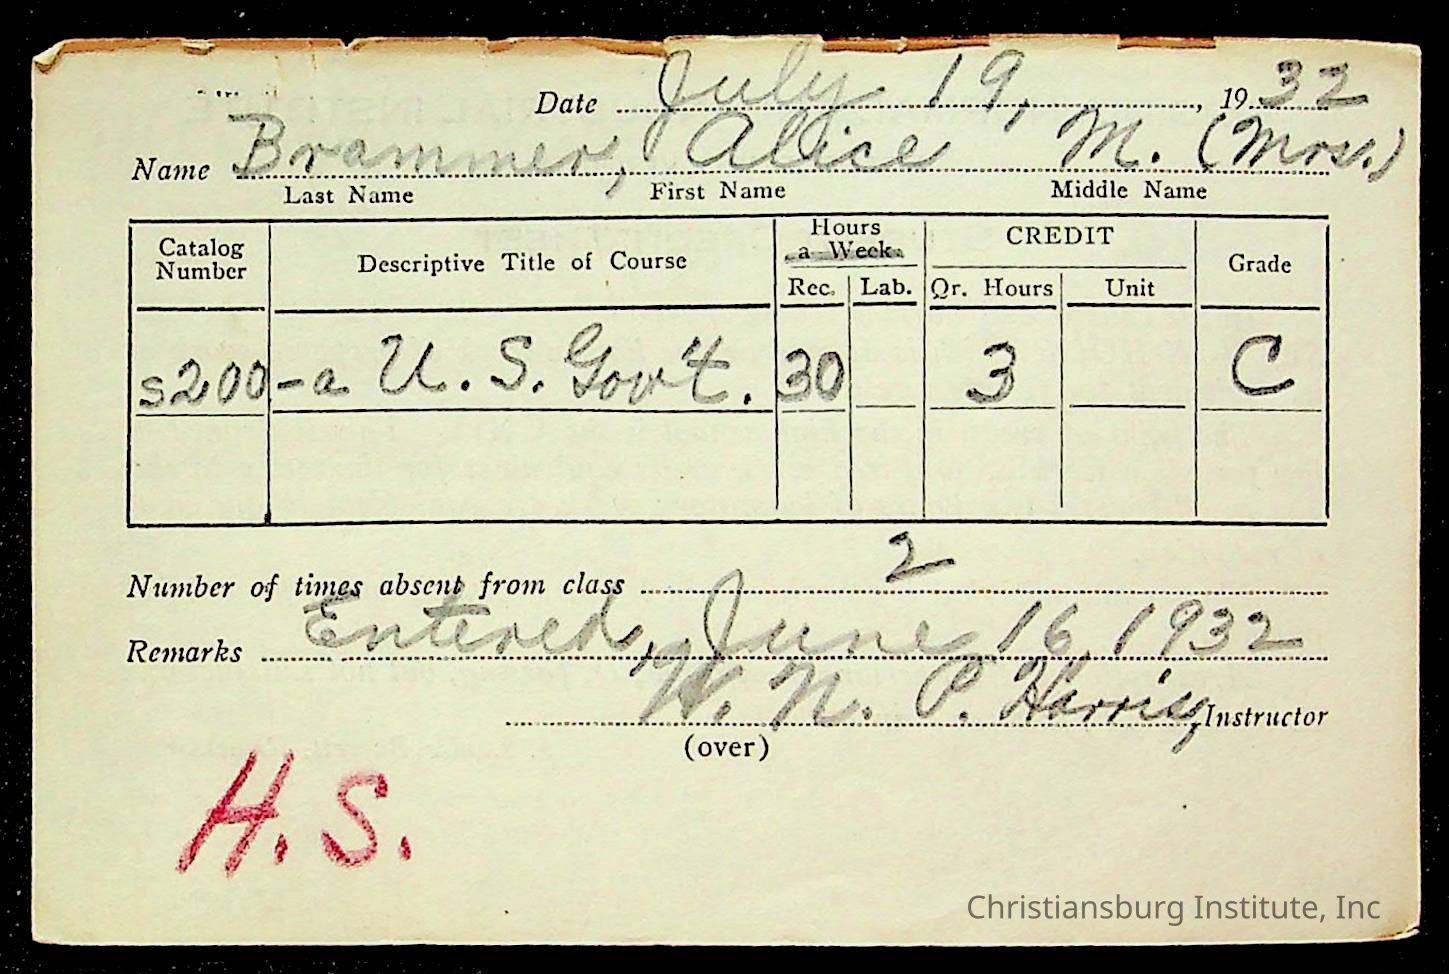 Date July 19, 1932
Name Brammer, Alice M. (Mrs.)
Last Name First Name Middle Name
Catalog Number Descriptive Title of Course Hours a Week CREDIT Grade
Rec. Lab. Qr. Hours Unit
S200-a U. S. Gov't. 30 3 C
Number of times absent from class 2
Remarks Entered, June 16, 1932
W. N. P. Harris, Instructor
(over)
H. S.
Christiansburg Institute, Inc